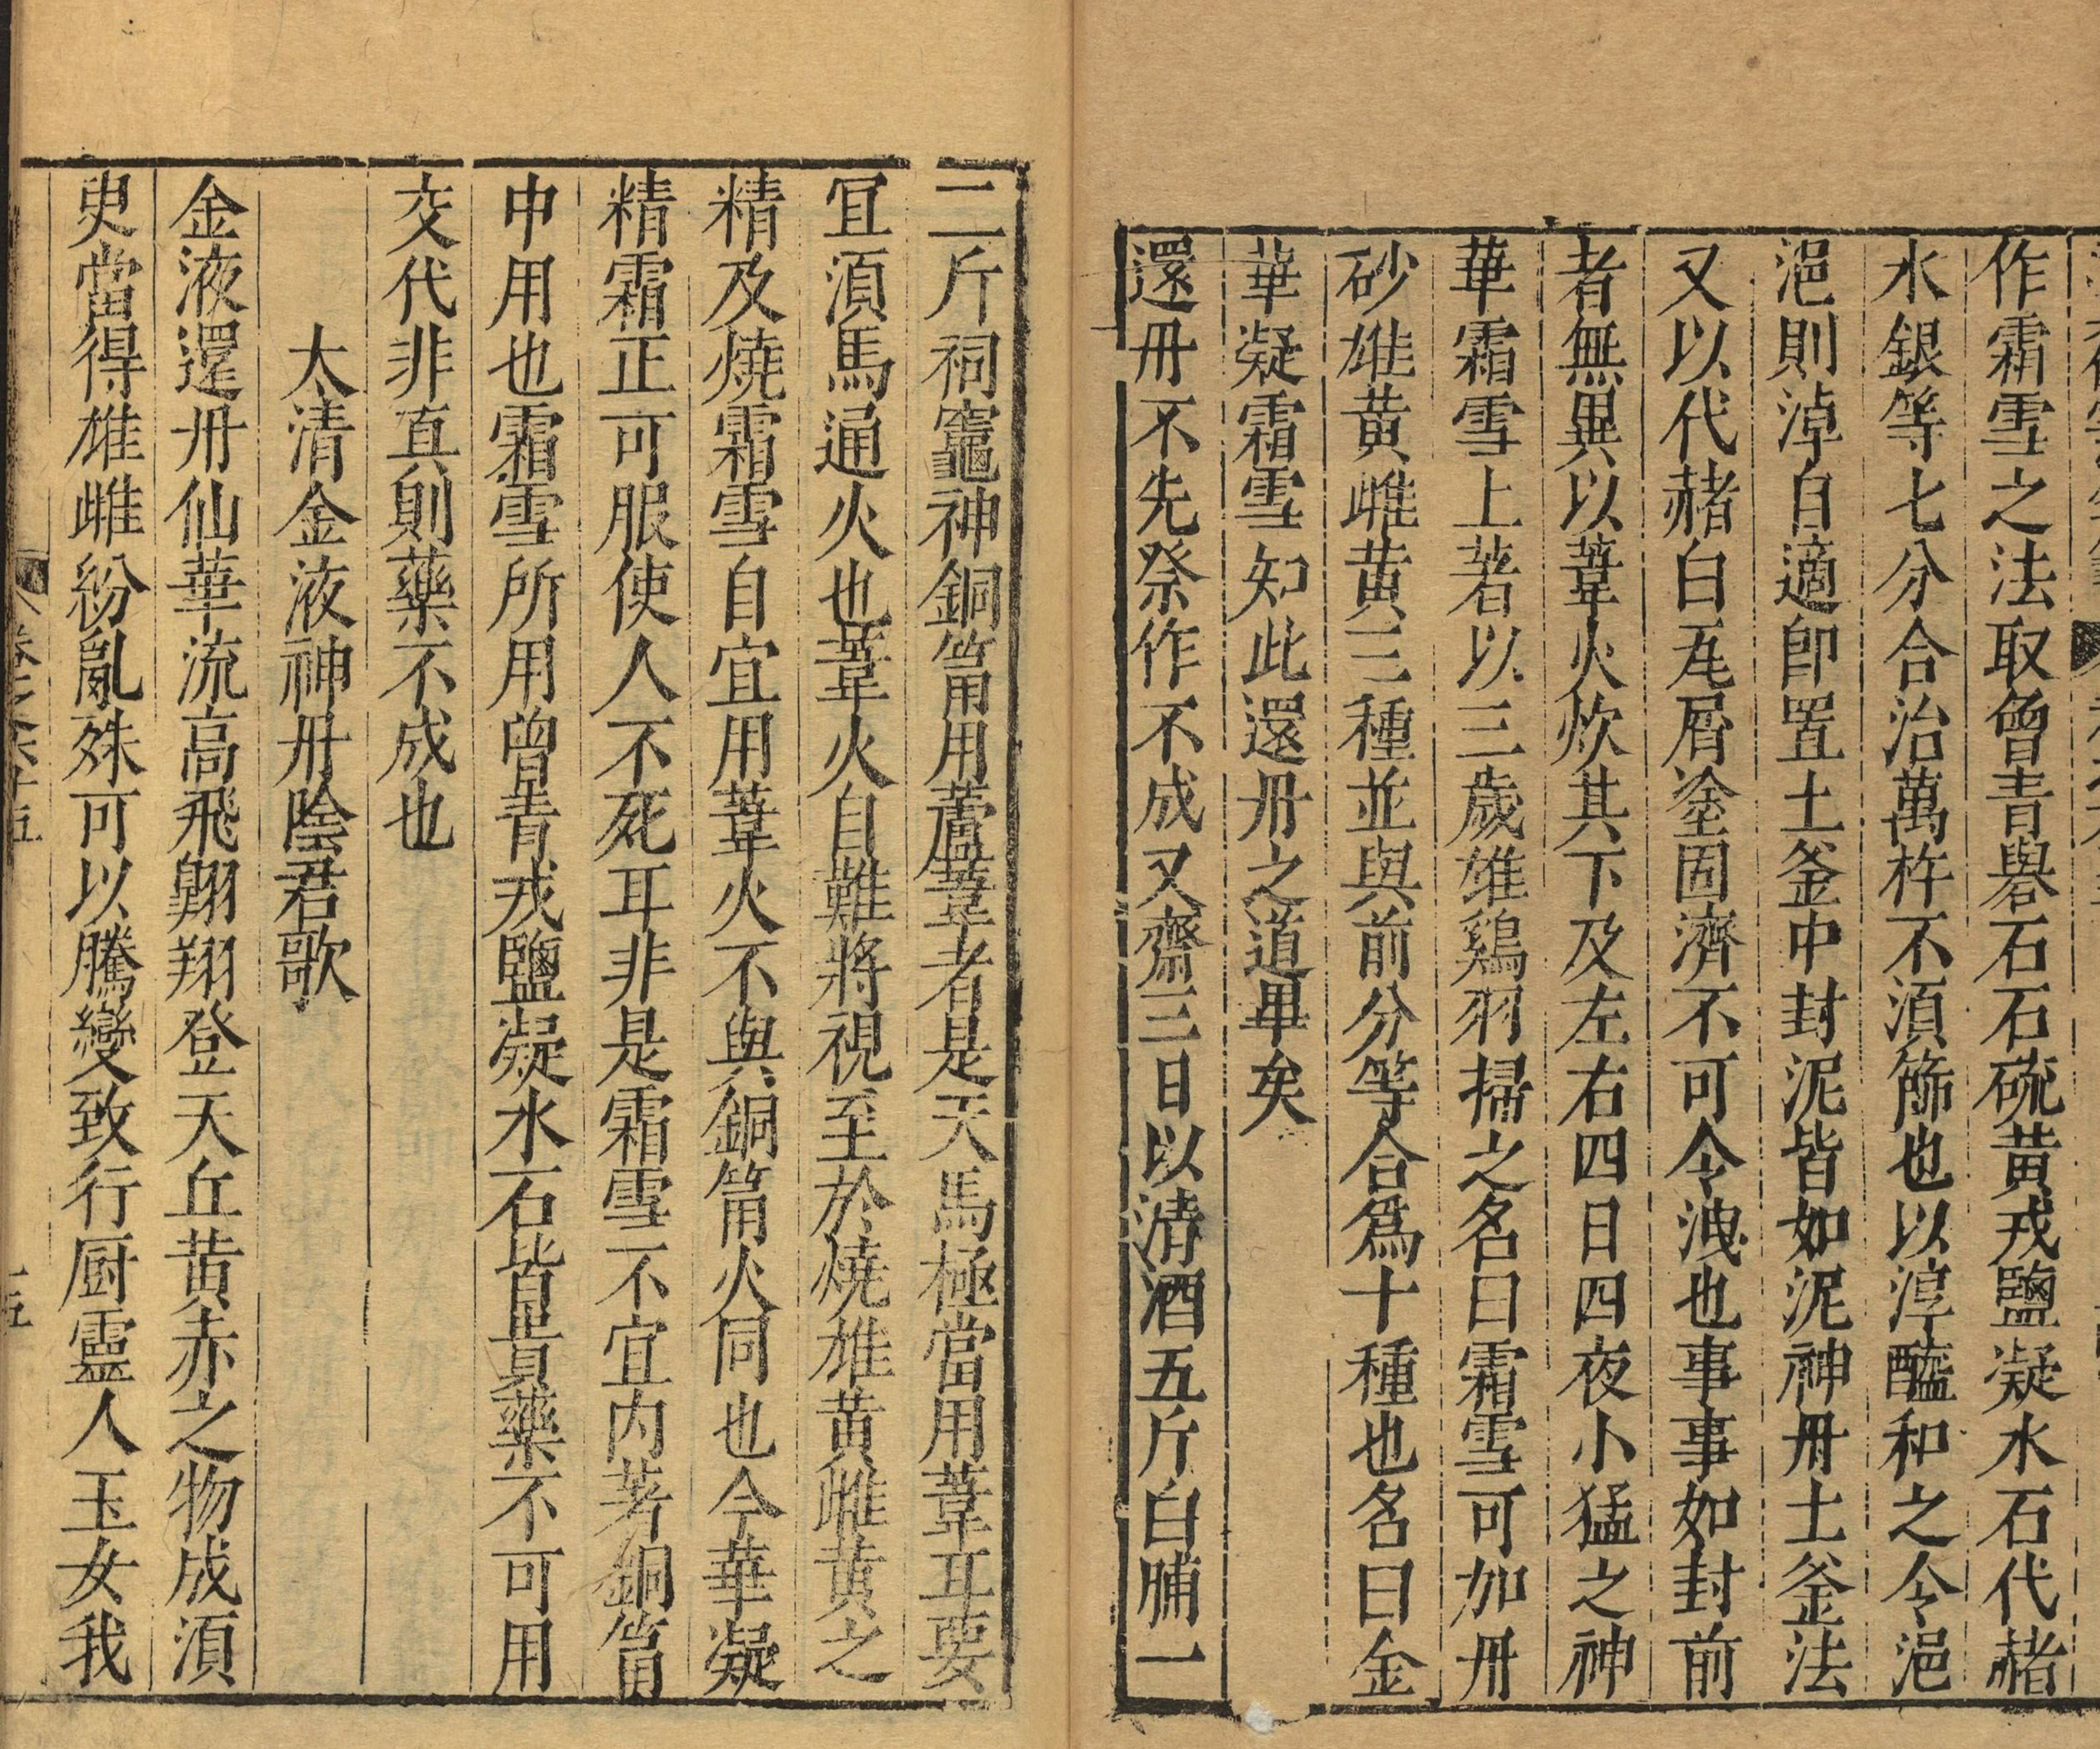 作霜雪之法取曾青礜石石硫黄戎鹽凝水石代赭
水銀等七分合治萬杵不湏篩也以淳醯和之令浥
浥則淖自適卽置土釜中封泥皆如泥神丹土釜法
又以代赭白瓦屑塗固濟不可令洩也事事如封前
者無異以葦火炊其下及左右四日四夜小猛之神
華霜雪上著以三歲雄鷄羽掃之名曰霜雪可加丹
砂雄黄雌黄三種並與前分等合爲十種也名曰金
華凝霜雪知此還丹之道畢矣
還丹不先祭作不成又齋三日以清酒五斤白脯一
二斤祠竈神銅筩用蘆葦者是天馬極當用葦耳要
宜湏馬通火也葦火自難將視至於燒雄黄雌黄之
精及燒霜雪自宜用葦火不與銅筩火同也今華凝
精霜正可服使人不死耳非是霜雪不宜内著銅筩
中用也霜雪所用曾青戎鹽凝水石皆貴藥不可用
交代非真則藥不成也
太清金液神丹陰君歌
金液還丹仙華流高飛翺翔登天丘黄赤之物成湏
臾當得雄雌紛亂殊可以騰變致行厨靈人玉女我